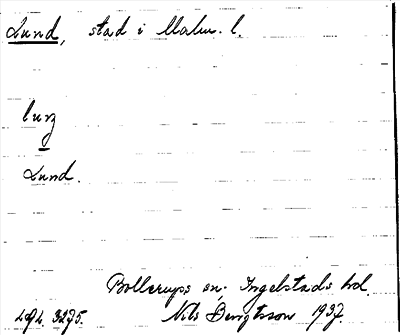 Lund, stad i Malm. l.
Lund.
Bollerups sn; Ingelstads hd.
Nils Bengtsson 1937